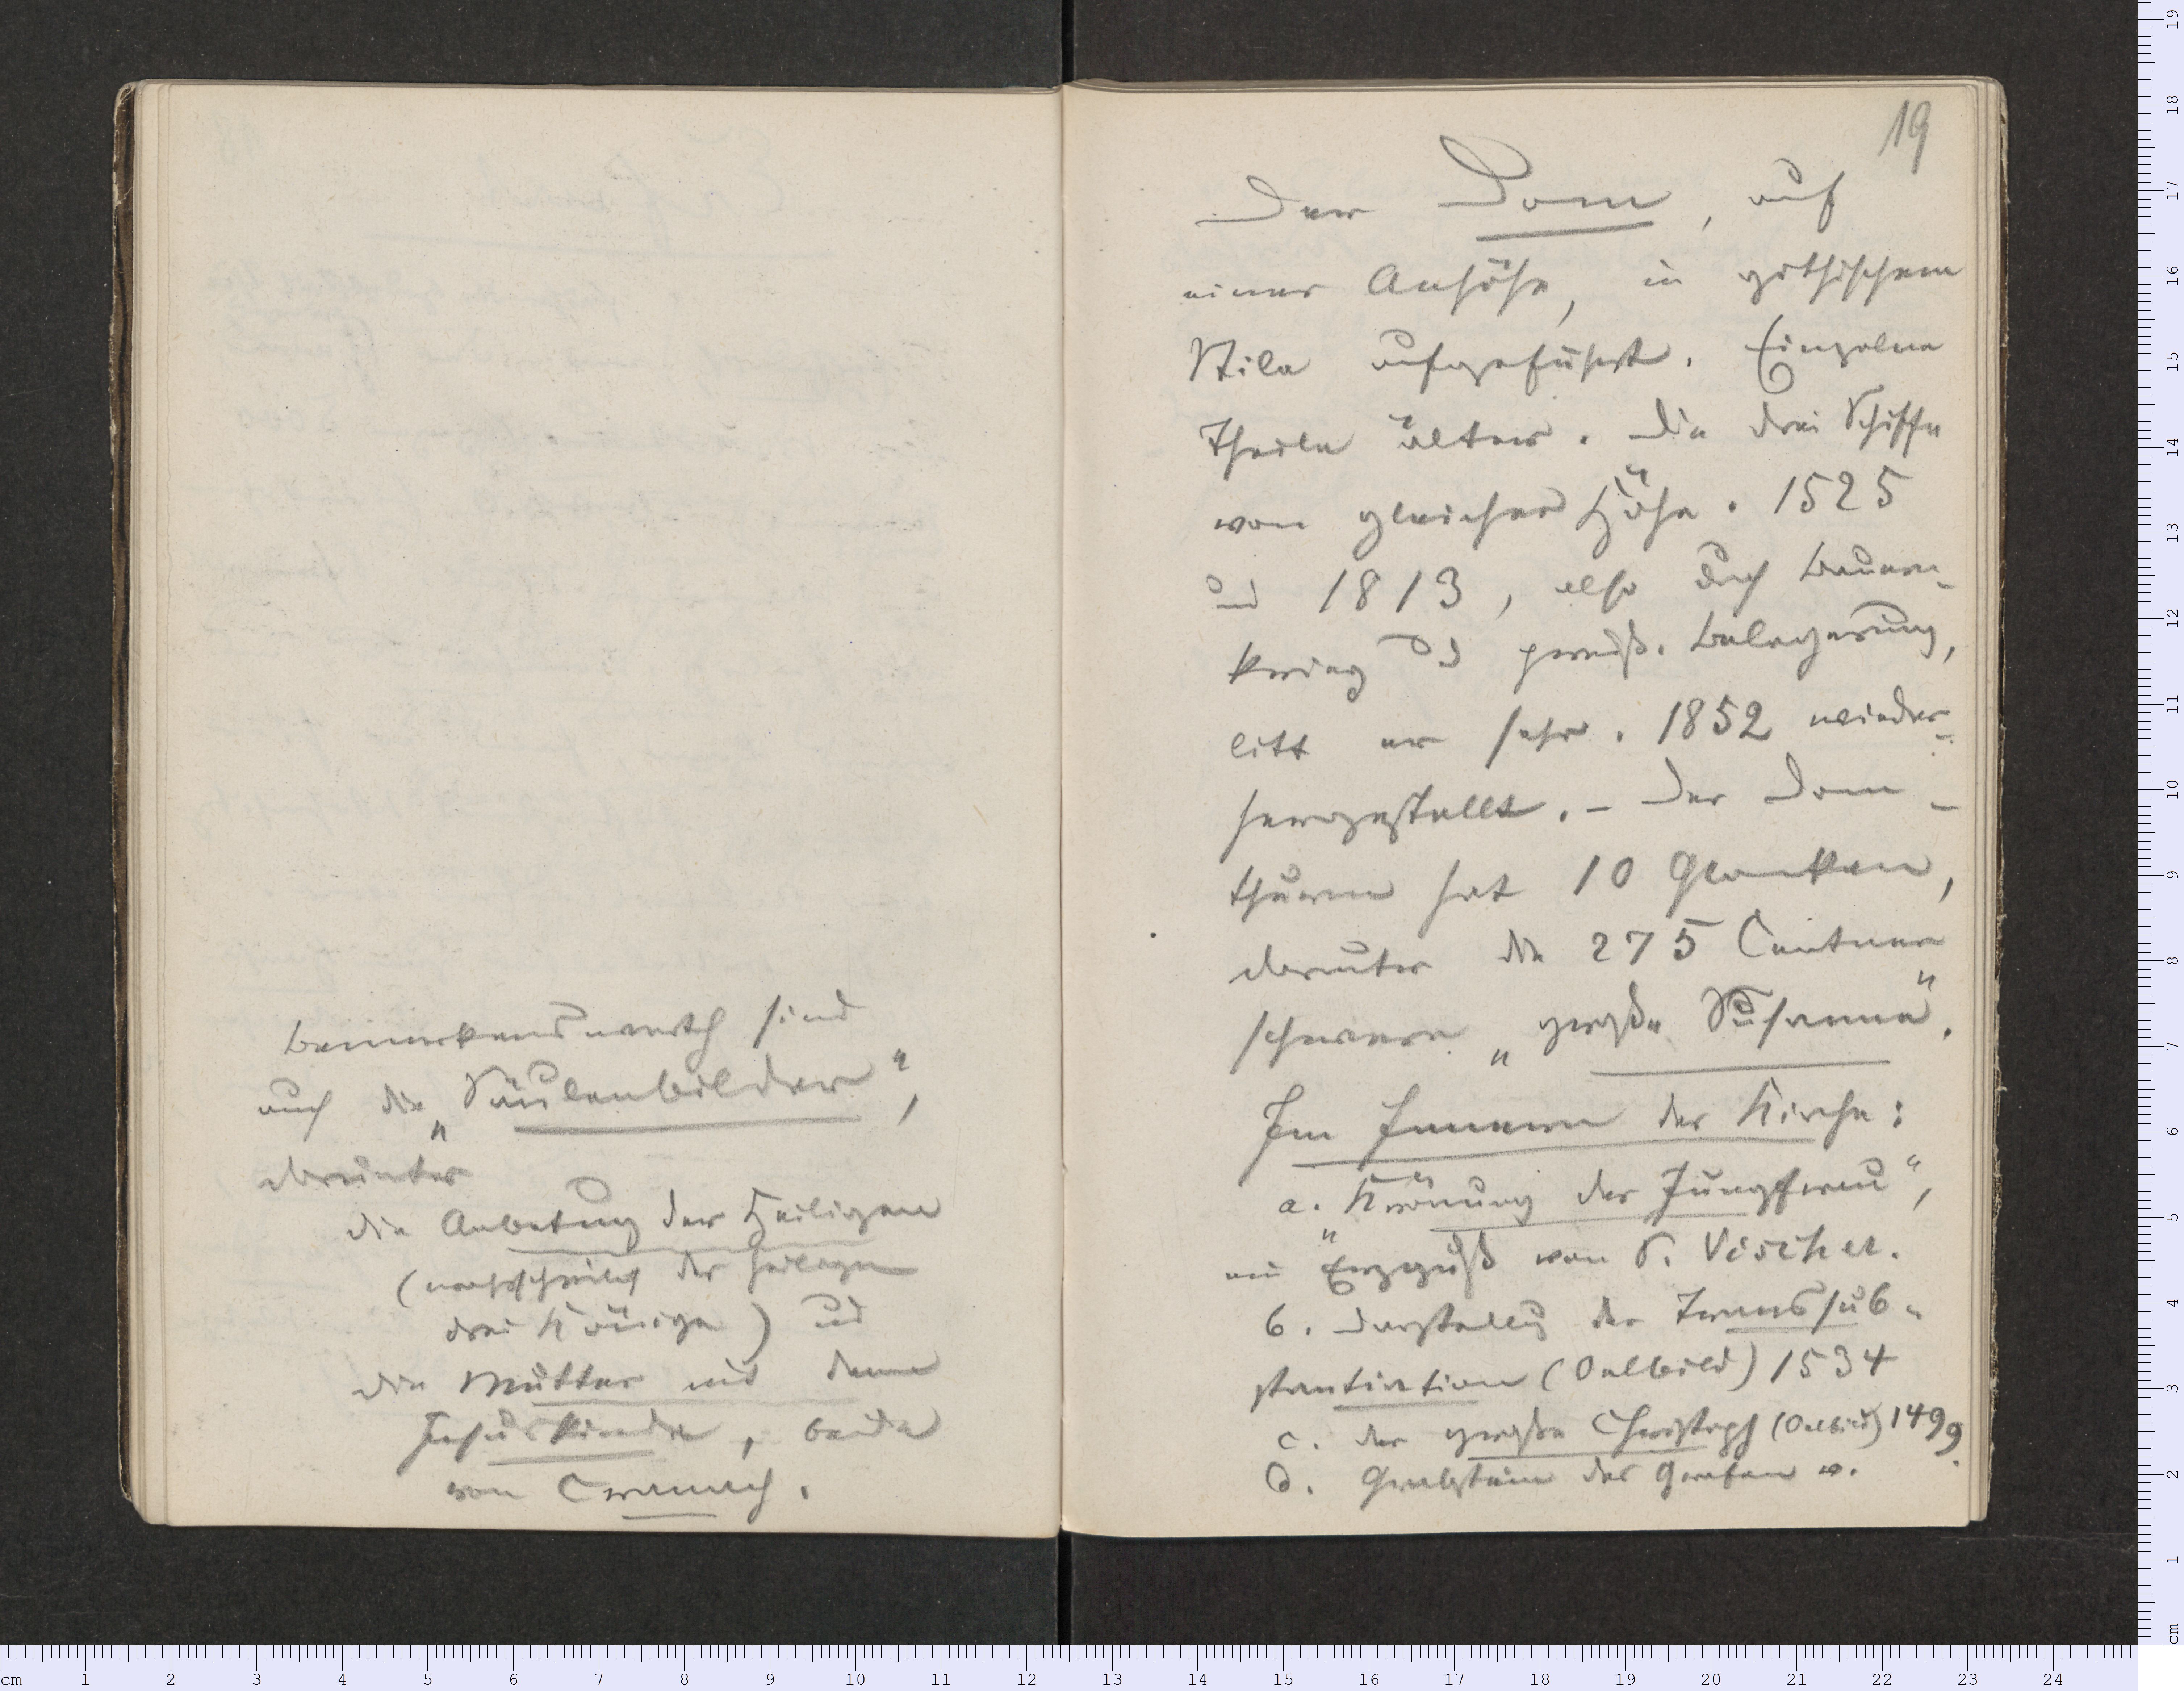 Bemerkenswerth sind
auch die „Säulenbilder“,
darunter
die Anbetung der Heiligen
(wahrscheinlich der heiligen
drei Könige) und
die Mutter mit dem
Jesuskinde, beide
von Cranach.
19
Der Dom, auf
einer Anhöhe, in gothischem
Stile aufgeführt. Einzelne
Theile älter. Die drei Schiffe
von gleicher Höhe. 1525
und 1813, also durch Bauern-
krieg und preuß. Belagerung,
litt er sehr. 1852 wieder-
hergestellt. – Der Dom-
thurm hat 10 Glocken,
darunter die 275 Centner
schwere „große Susanna“.
Im Innern der Kirche:
a. „Krönung der Jungfrau“,
ein Erzguß von P. Vischer.
b. Darstellung der Transsub-
stantiation (Oelbild) 1534
c. der große Christoph (Oelbild) 1499.
d. Grabstein des Grafen v.